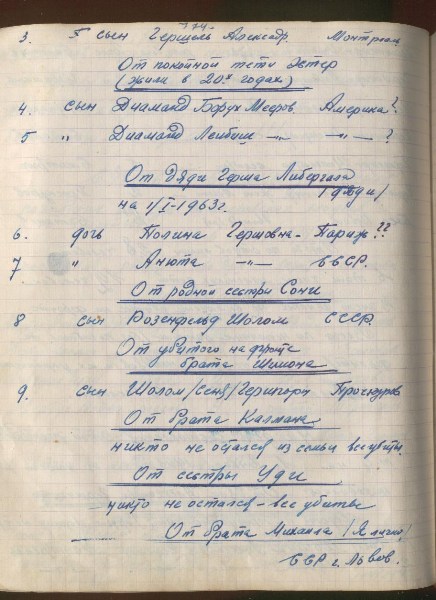 - 374 -
3. сын Гершель Александр. Монтреал
От покойной тети Эстер
(жила в 20х годах)
4. сын Диаманд Борух Мееров Америка?
5 " Диаманд Лейбиш —"— —"— ?
От дяди Герша Либергала
/Годуи/
на 1/I-1963г.
6. дочь Полина Гершовна - Париж??
7 " Анюта —"— СССР.
От родной сестры Сони
8 сын Розенфельд Шолом СССР.
От убитого на фронте
брата Шимона
9. сын Шолом/Сеня/Герипорн Проскуров
От брата Калмана
никто не остался из семьи все убиты.
От сестры Уди
никто не остался - все убиты
От брата Михаила /Я лично/
СССР г. Львов.